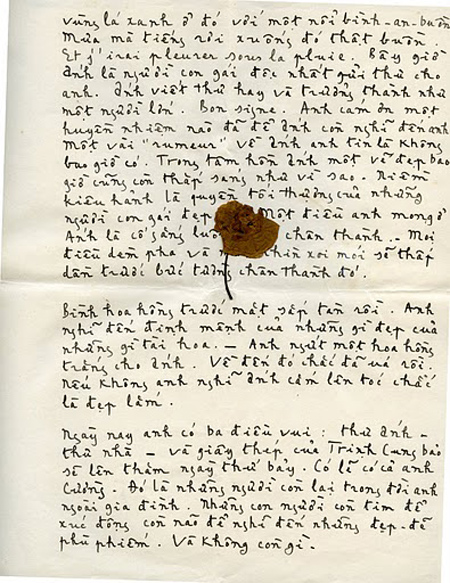 vùng lá xanh ở đó với một nỗi bình-an-buồn.
Mưa mà tiếng rơi xuống đó thật buồn.
Et j'irai pleurer sous la pluie. Bây giờ
Ánh là người con gái độc nhất gửi thư cho
anh. Ánh viết thư hay và trưởng thành như
một người lớn. Bon signe. Anh cám ơn một
huyền nhiệm nào đã để Ánh còn nghĩ đến anh
Một vài "rumeur" về Ánh anh tin là không
bao giờ có. Trong tâm hồn Ánh một vẻ đẹp bao
giờ cũng còn thắp sáng như vì sao. Niềm
kiêu hãnh là quyền tối thượng của những
người con gái đẹp Một điều anh mong ở
Ánh là cố gắng chân thành. Mọi
điều dèm pha và xoi mói sẽ thấp
dần trước bức tường chân thành đó.
Bình hoa hồng trước mắt sắp tàn rồi. Anh
nghĩ đến định mệnh của những gì đẹp của
những gì tài hoa. — Anh ngắt một hoa hồng
trắng cho Ánh. Về đến đó chắc đã úa rồi.
Nếu không anh nghĩ Ánh cắm lên tóc chắc
là đẹp lắm.
Ngày nay anh có ba điều vui: thư Ánh —
thư nhà — và giấy thép của Trịnh Cung báo
sẽ lên thăm ngày thứ bảy. Có lẽ có cả anh
Cường. Đó là những người còn lại trong đời anh
ngoài gia đình. Những con người còn tim để
xúc động còn não để nghĩ đến những đẹp-đẽ
phù phiếm. Và không còn gì.